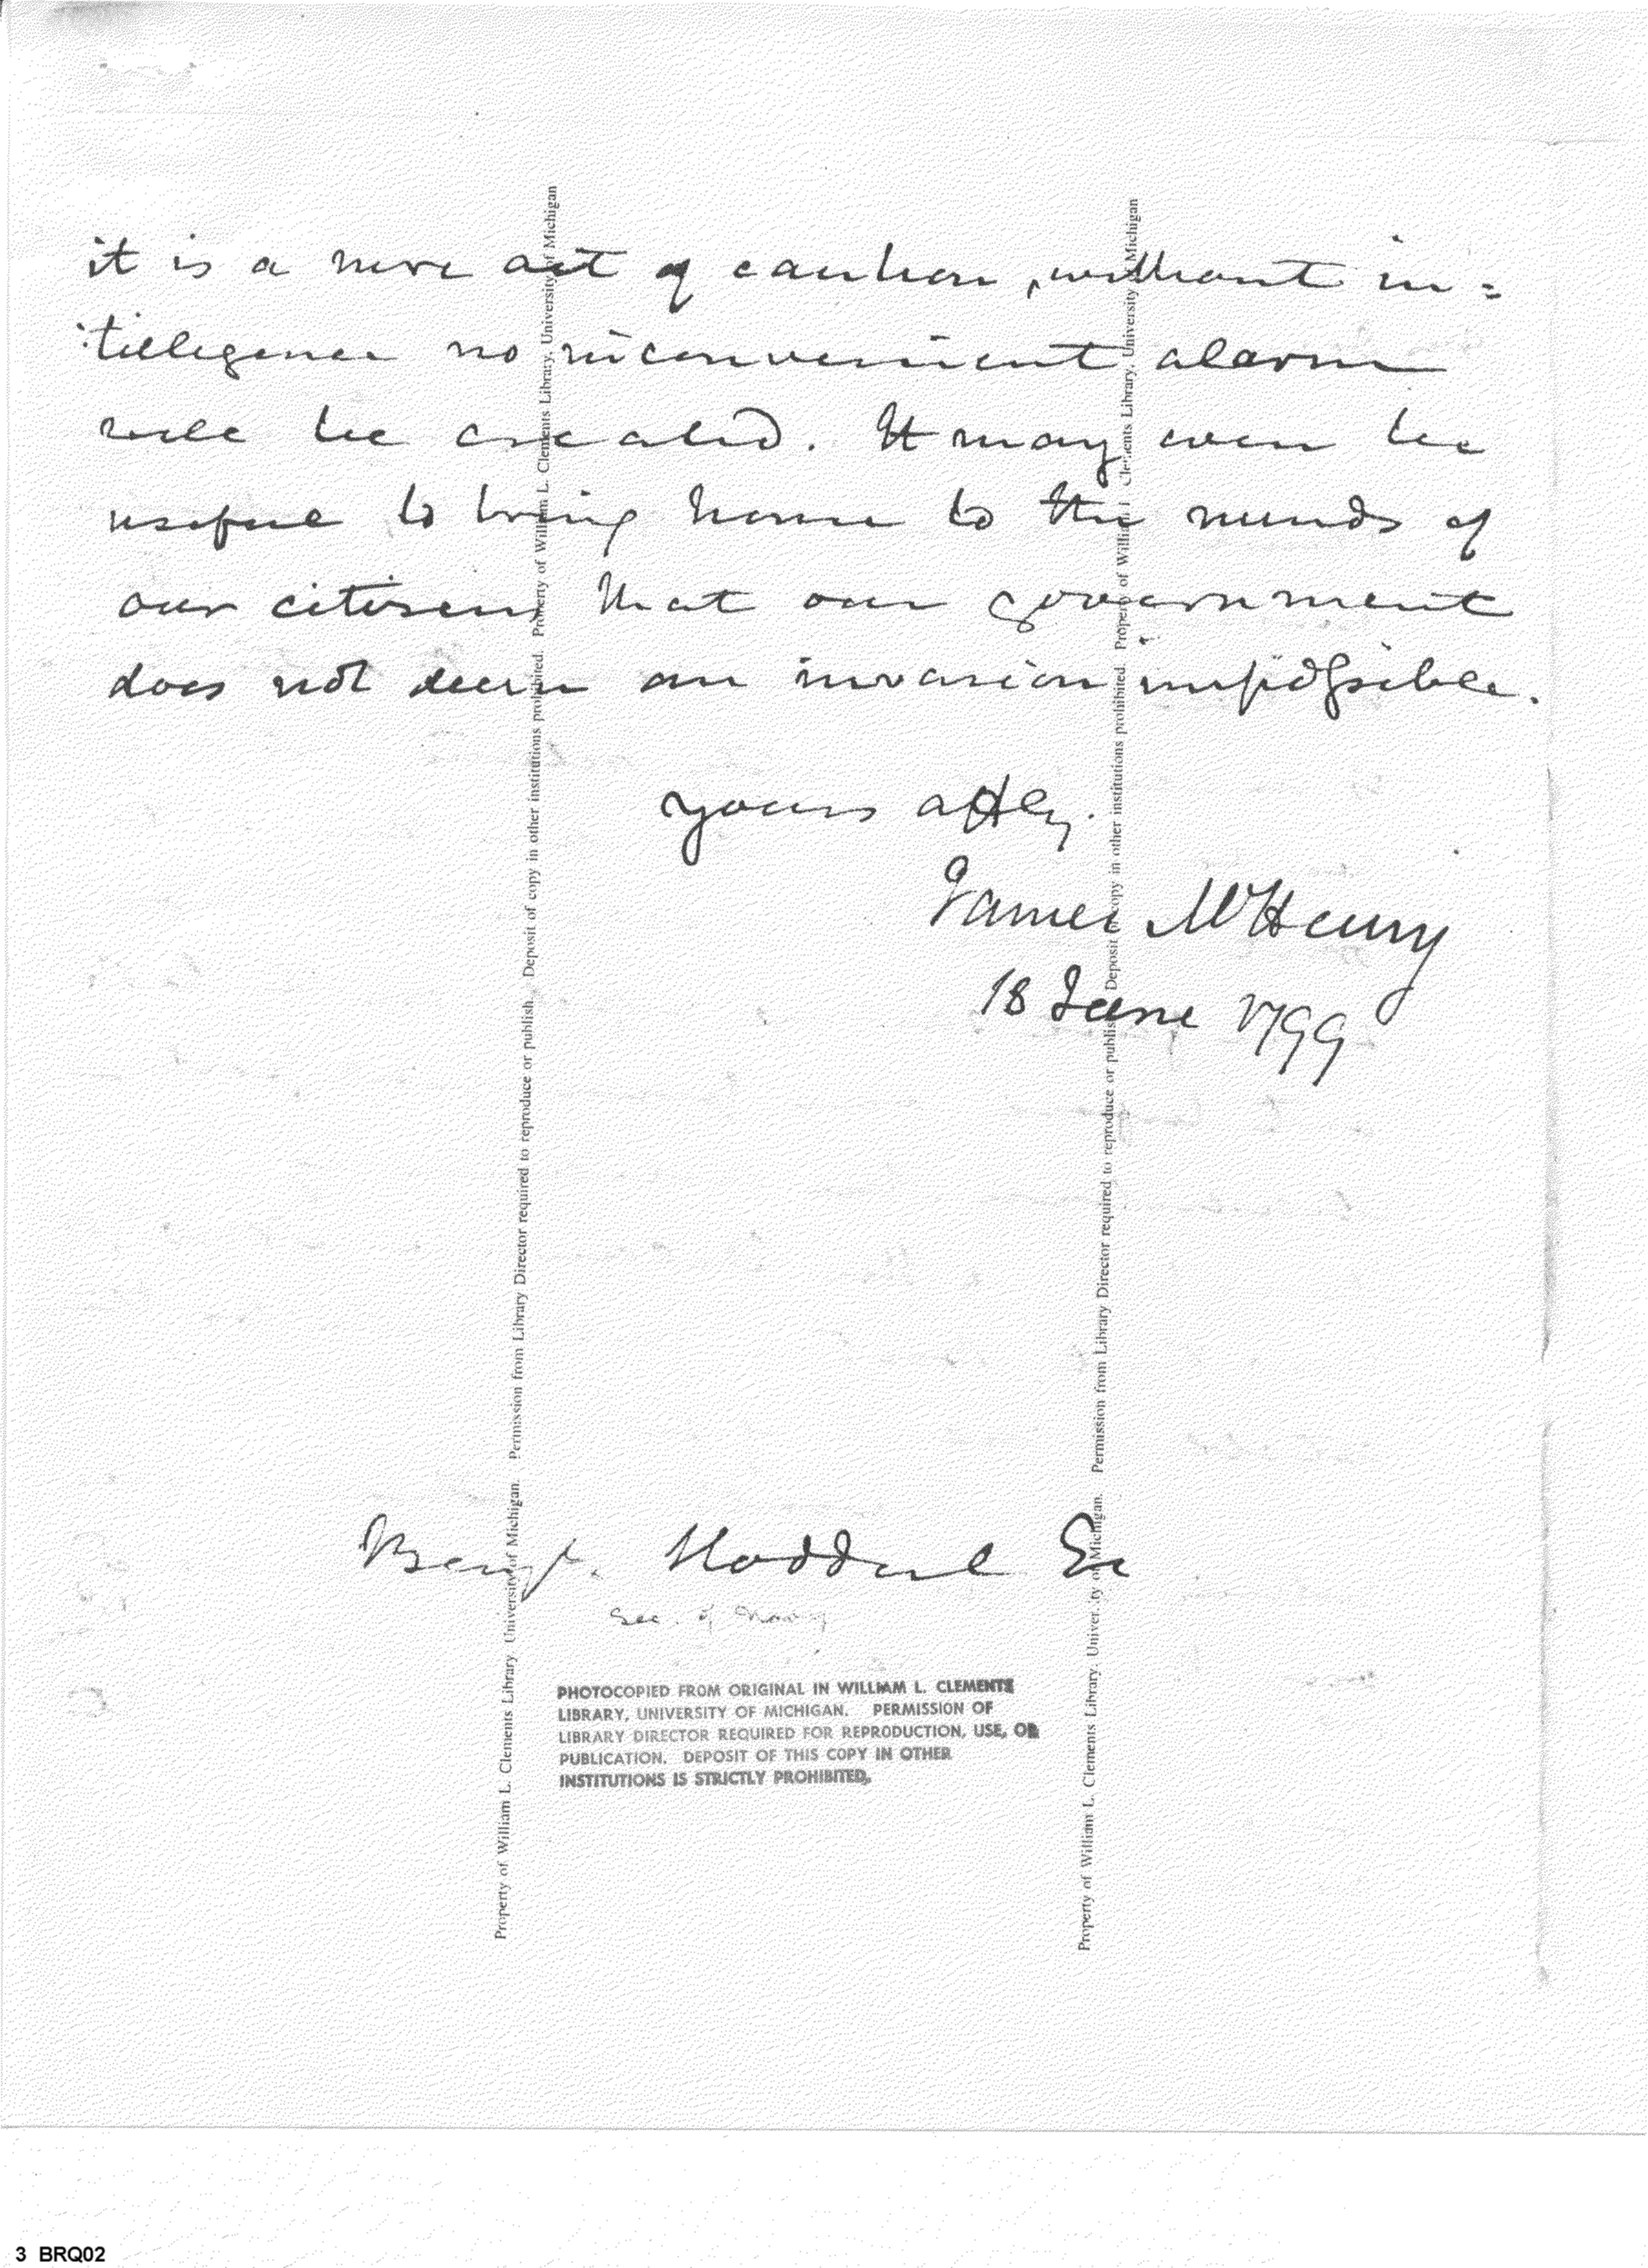 it is a mere act of caution, without in=
:telligence no inconvenient alarm
will be created. It may even be
useful to bring home to the minds of
our citizens that our government
does not deem an invasion impossible.
yours affly.
James McHenry
18 June 1799
Benjn. Stoddert Es
Sec. of Navy
PHOTOCOPIED FROM ORIGINAL IN WILLIAM L. CLEMENTS
LIBRARY, UNIVERSITY OF MICHIGAN. PERMISSION OF
LIBRARY DIRECTOR REQUIRED FOR REPRODUCTION, USE, OR
PUBLICATION. DEPOSIT OF THIS COPY IN OTHER
INSTITUTIONS IS STRICTLY PROHIBITED.
Property of William L. Clements Library, University of Michigan. Permission from Library Director required to reproduce or publish. Deposit of copy in other institutions prohibited. Property of William L. Clements Library, University of Michigan
Property of William L. Clements Library, University of Michigan. Permission from Library Director required to reproduce or publish. Deposit of copy in other institutions prohibited. Property of William L. Clements Library, University of Michigan
3 BRQ02